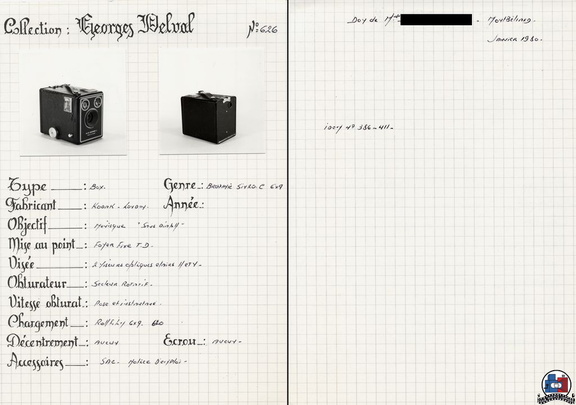 Collection : Georges Delval
N°: 626
Type : Box.
Genre : Brownie Six20. C 6x9
Fabricant : Kodak. London.
Année :
Objectif : Ménisque
Mise au point : Foyer Fixe
Visée : 2 viseurs optiques clairs H et V.
Obturateur : Secteur Rotatif.
Vitesse obturat. : Pose et instantané.
Chargement : Roll film 6x9. 620
Décentrement : aucun
Ecrou : aucun.
Accessoires : Sac. Notice D'emploi.
Don de Mr - Montbéliard.
Janvier 1980.
N° 386-411.